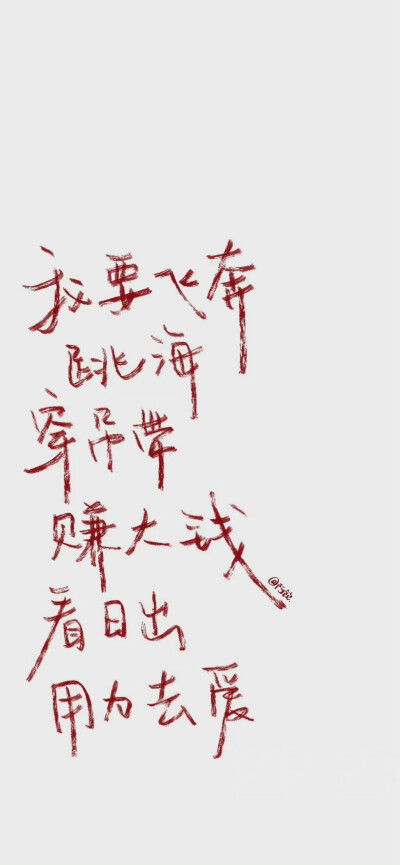 我要飞奔
跳海
穿吊带
赚大钱
看日出
用力去爱